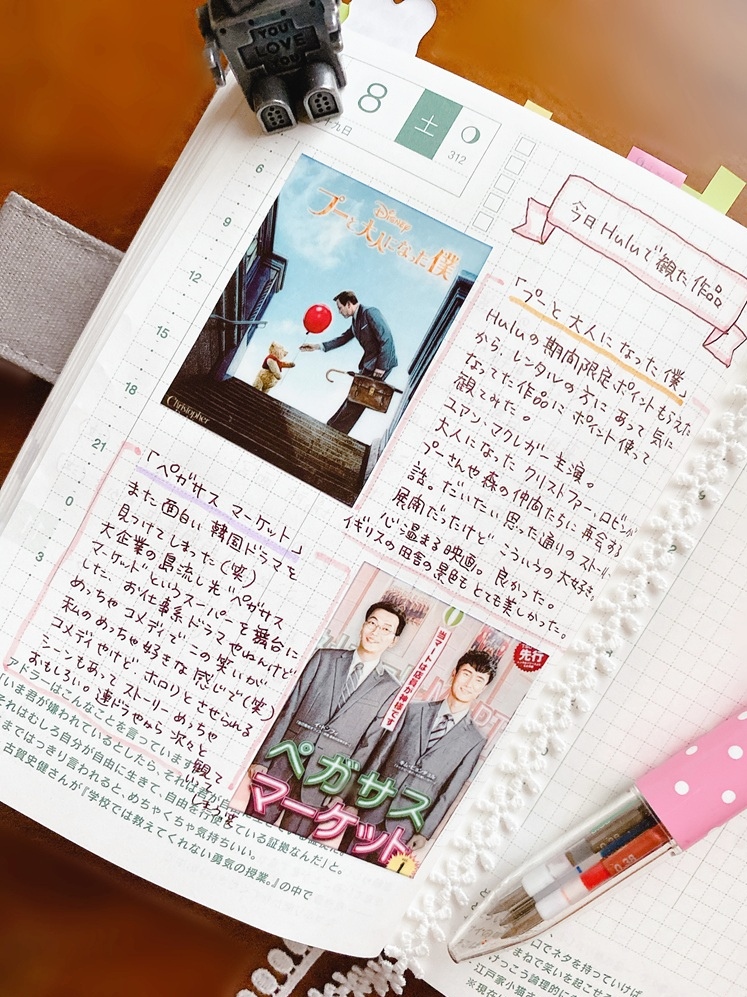 YOU
LOVE
YOU
8
土
九日
312
6
9
12
15
18
21
0
3
今日Huluで観た作品
Disney
プーと大人になった僕
Christopher
「プーと大人になった僕」
Huluの期間限定ポイントもらえた
から、レンタルの方にあって気に
なってた作品にポイント使って
観てみた。
ユアン・マクレガー主演。
大人になったクリストファー・ロビンが
プーさんや森の仲間たちに再会する
話。だいたい思った通りのストーリー
展開だったけどこういうの大好き。
心温まる映画。良かった。
イギリスの田舎の景色もとても美しかった。
「ペガサス マーケット」
また面白い韓国ドラマを
見つけてしまった(笑)
大企業の島流し先“ペガサス
マーケット”というスーパーを舞台に
した、お仕事系ドラマやねんけど
めっちゃコメディでこの笑いが
私のめっちゃ好きな感じで(笑)
コメディやけどホロリとさせられる
シーンもあってストーリーめっちゃ
おもしろい。連ドラやから次々と
観て
しまう
当マートは店員が神様です
先行
ペガサス
マーケット
1
アドラーはこんなことを言っています
「いま君が嫌われているとしたら、それは君が自
それはむしろ自分が自由に生きて、自由を行使している証拠なんだ」と。
まではっきり言われると、めちゃくちゃ気持ちいい。
古賀史健さんが『学校では教えてくれない勇気の授業。』の中で
0.38
口でネタを持っていけば
まねで笑いを起こせる
けっこう論理的に
江戸家小猫さ
※現在